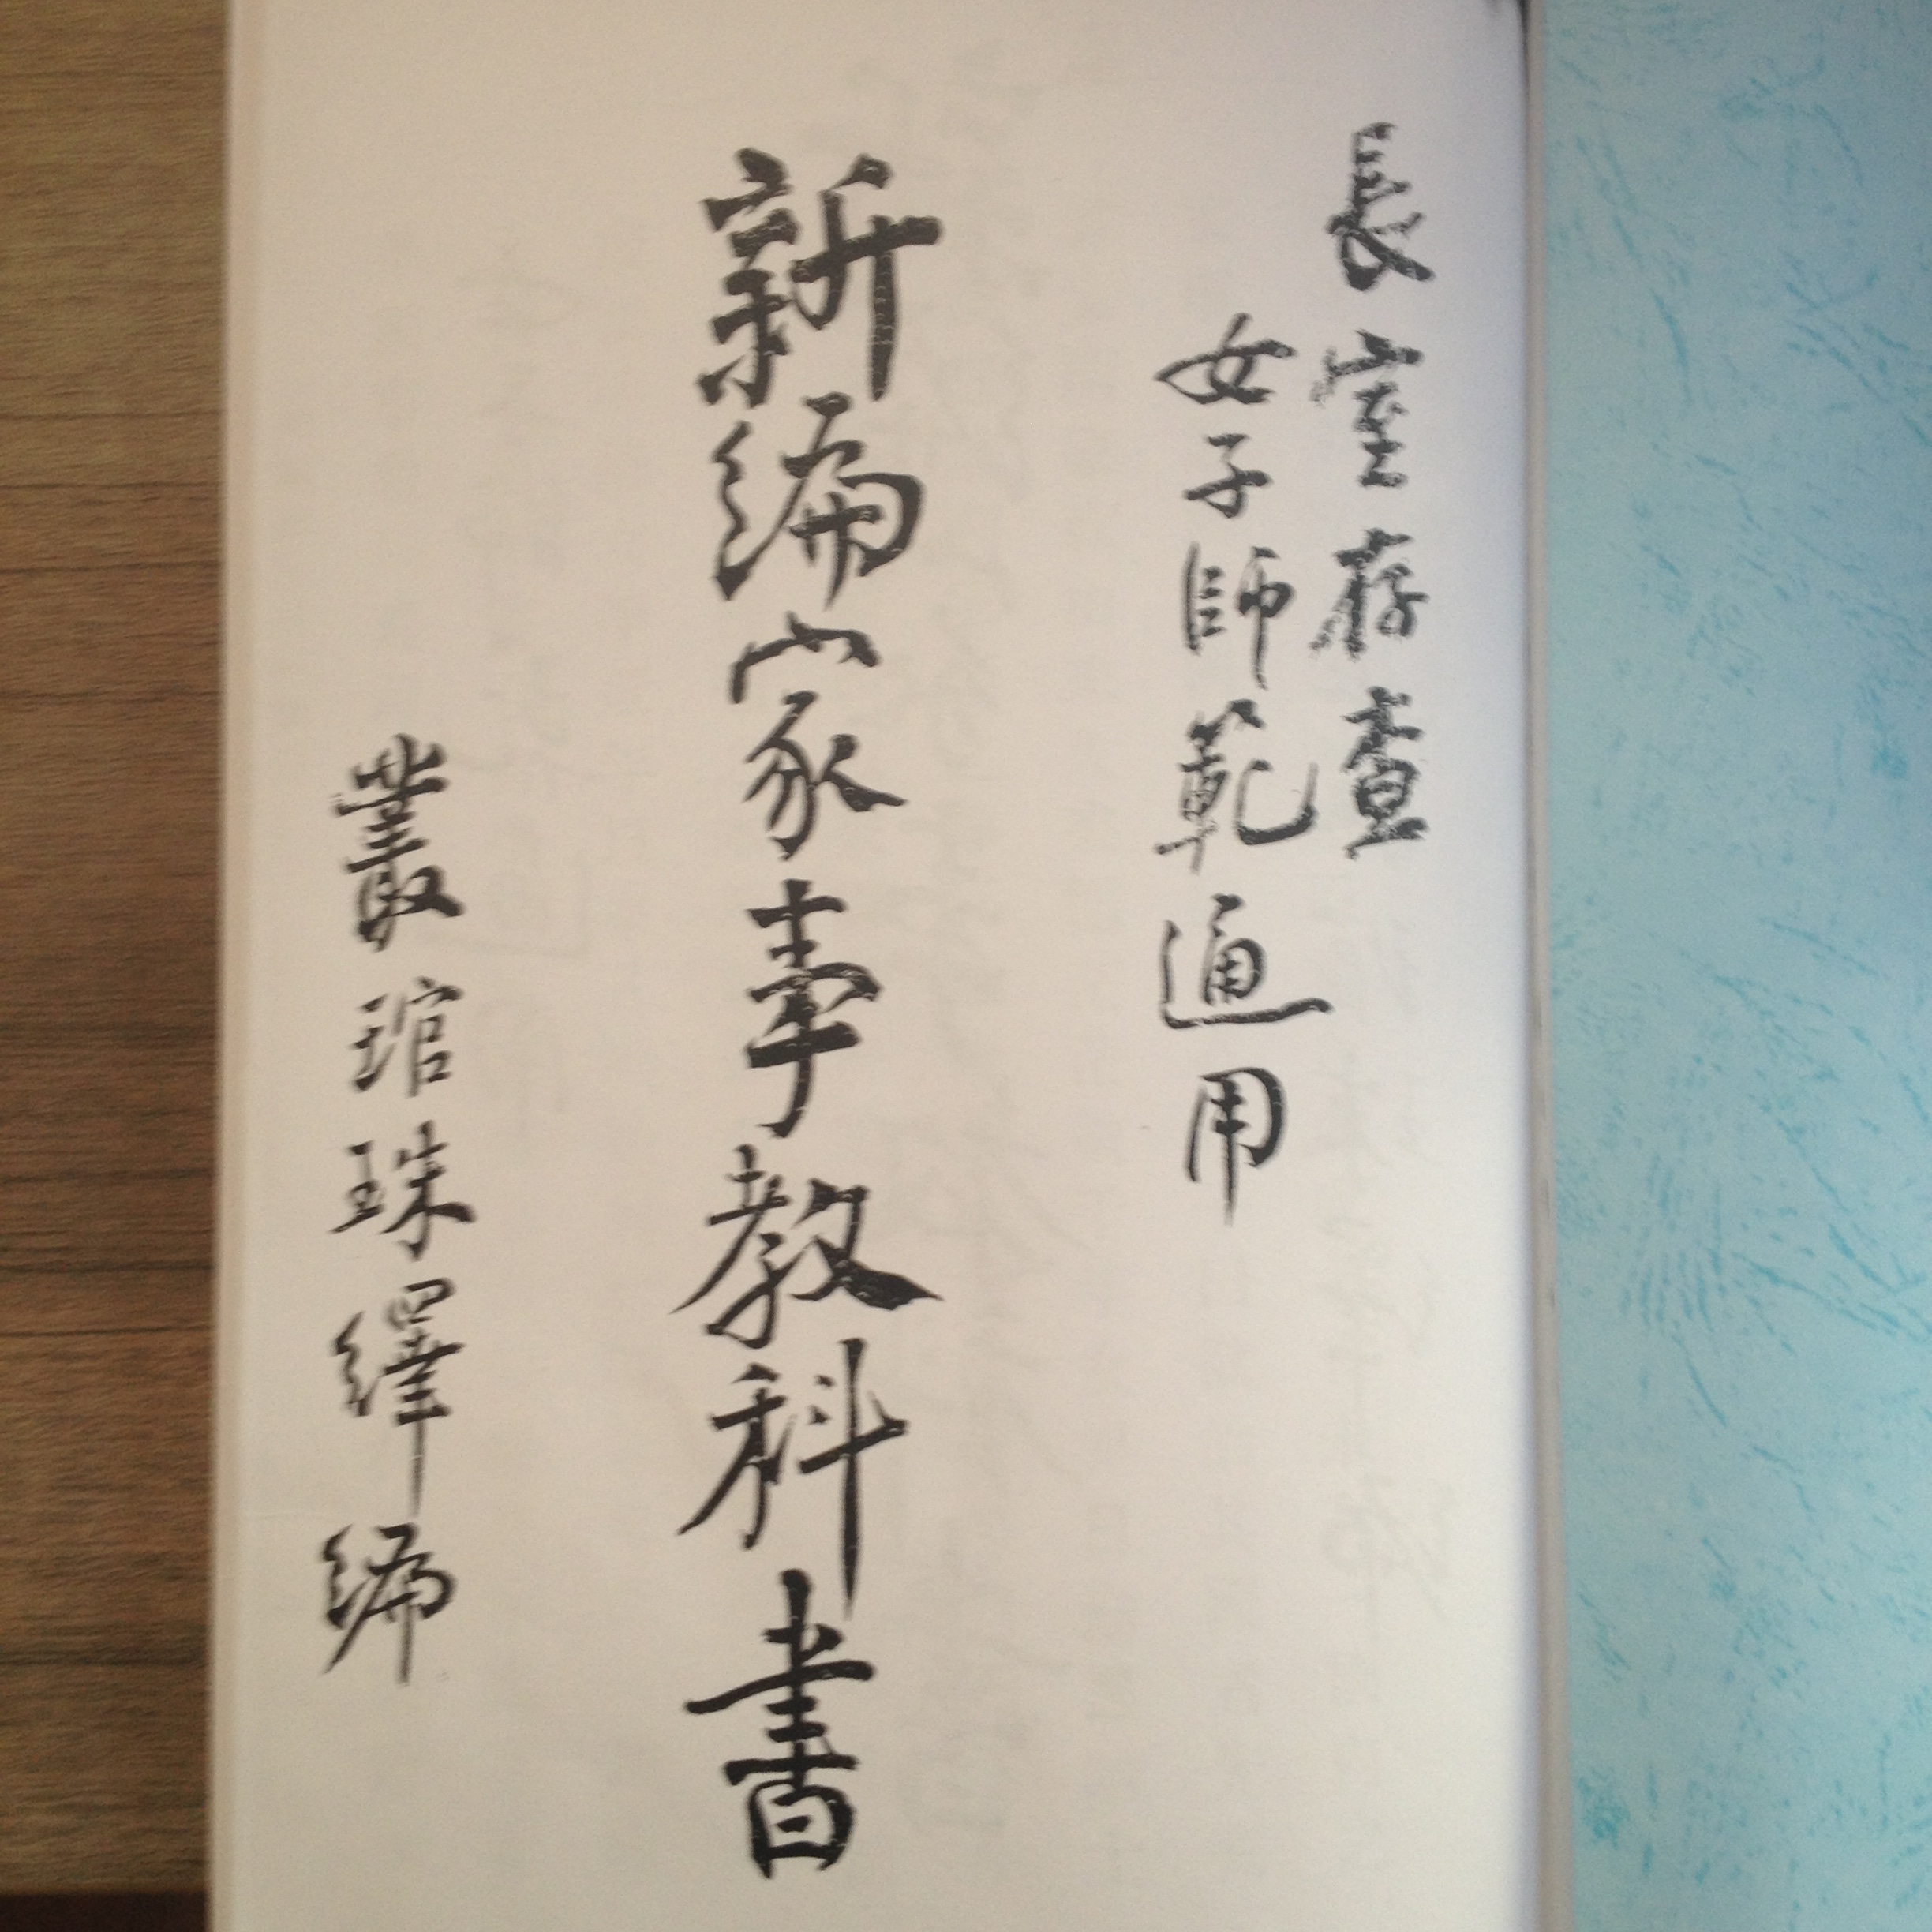 長室存查
女子師範適用
新編家事教科書
叢琯珠繹編